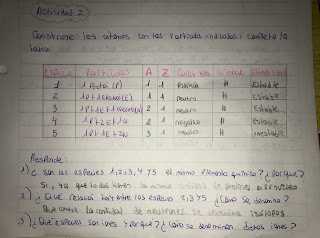 Actividad 2
Construye los átomos con las partículas indicadas y complete la
tabla.
Especie Partículas A Z Carga neta Símbolo Estabilidad
1 1 Protón (P) 1 1 Positiva H Estable
2 1P+1 Electrón (E) 1 1 neutro H Estable
3 1P+1E+1 Neutrón(N) 2 1 neutro H Estable
4 1P+2E+1N 2 1 negativo H Estable
5 1P+1E+2N 3 1 neutro H inestable
Responde:
1) ¿ Son las especies 1,2,3,4 y 5 el mismo elemento químico? ¿Por que?
Si, ya que todos tienen la misma cantidad de protones en el núcleo
2) ¿ Qué relación hay entre las especies 2,3 y 5 ¿Cómo se denomina?
la cantidad de neutrones se denomina isótopos
3) ¿Qué especies son iones y porque? ¿Cómo se denominan dichos iones?